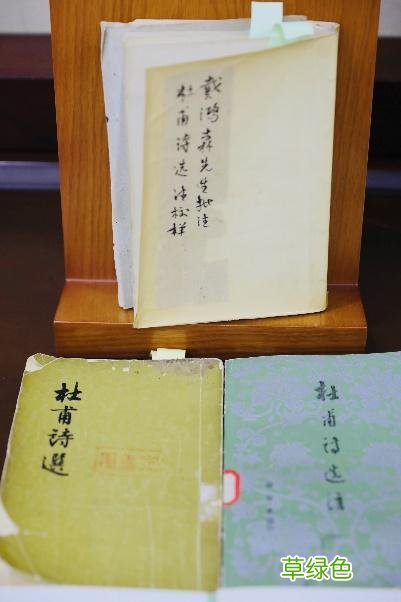 戴鸿森先生批注
杜甫诗选注校样
杜甫詩選
杜甫诗选注
草绿色